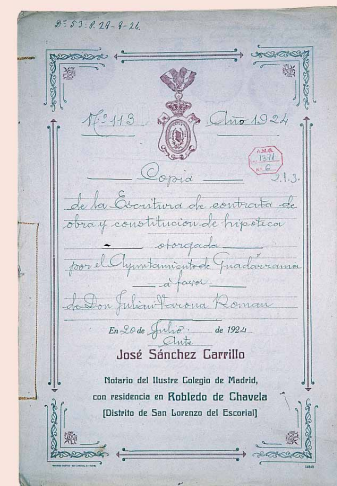 Nº 113 Año 1924
Copia
de la Escritura de contrata de
obra y constitucion de hipoteca
otorgada
por el Ayuntamiento de Guadarrama
a favor
de Don Julian Varona Roman
En 20 de Julio de 1924
Ante
José Sánchez Carrillo
Notario del Ilustre Colegio de Madrid,
con residencia en Robledo de Chavela
(Distrito de San Lorenzo del Escorial)